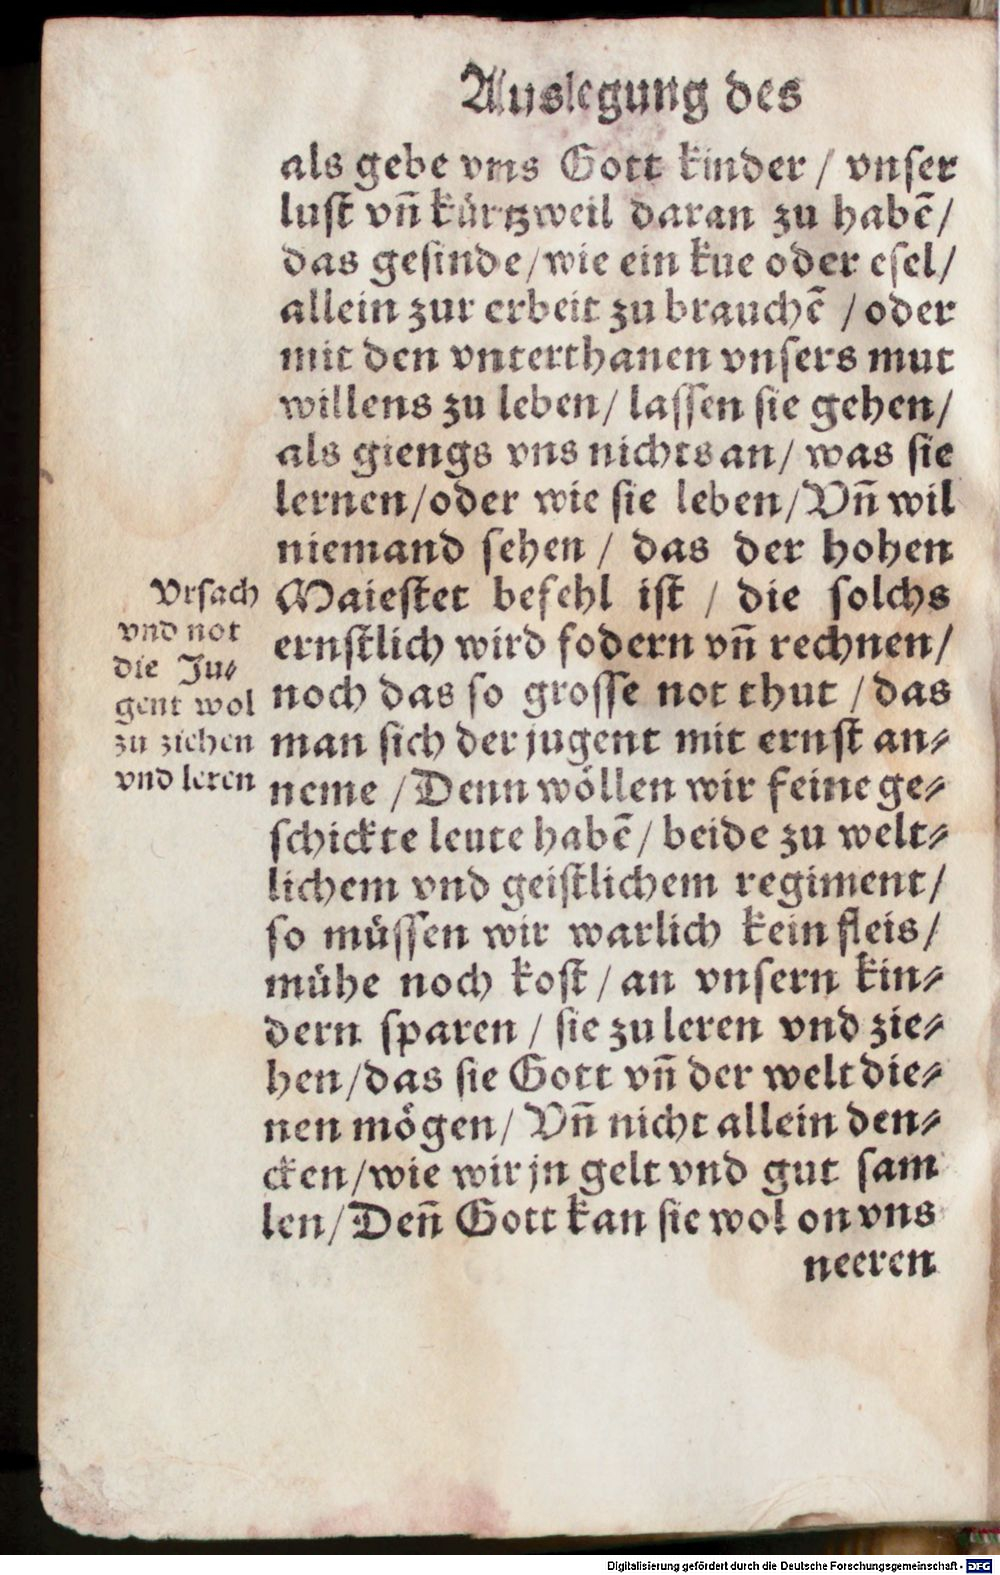 Auslegung des
als gebe vns Gott kinder / vnser
lust vñ kürtzweil daran zu habē/
das gesinde/wie ein kue oder esel/
allein zur erbeit zu brauchē /oder
mit den vnterthanen vnsers mut
willens zu leben/ lassen sie gehen/
als giengs vns nichts an/ was sie
lernen/oder wie sie leben/Vñ wil
niemand sehen / das der hohen
Maiestet befehl ist / die solchs
ernstlich wird fodern vñ rechnen/
noch das so grosse not thut /das
man sich der jugent mit ernst an⸗
neme /Denn wöllen wir feine ge⸗
schickte leute habē/ beide zu welt⸗
lichem vnd geistlichem regiment/
so müssen wir warlich kein fleis/
mühe noch kost /an vnsern kin⸗
dern sparen / sie zu leren vnd zie⸗
hen/das sie Gott vñ der welt die⸗
nen mögen/ Vñ nicht allein den⸗
cken/wie wir jn gelt vnd gut sam
len/Deñ Gott kan sie wol on vns
neeren
Vrsach
vnd not
die Ju⸗
gent wol
zu ziehen
vnd leren
Digitalisierung gefördert durch die Deutsche Forschungsgemeinschaft - DFG